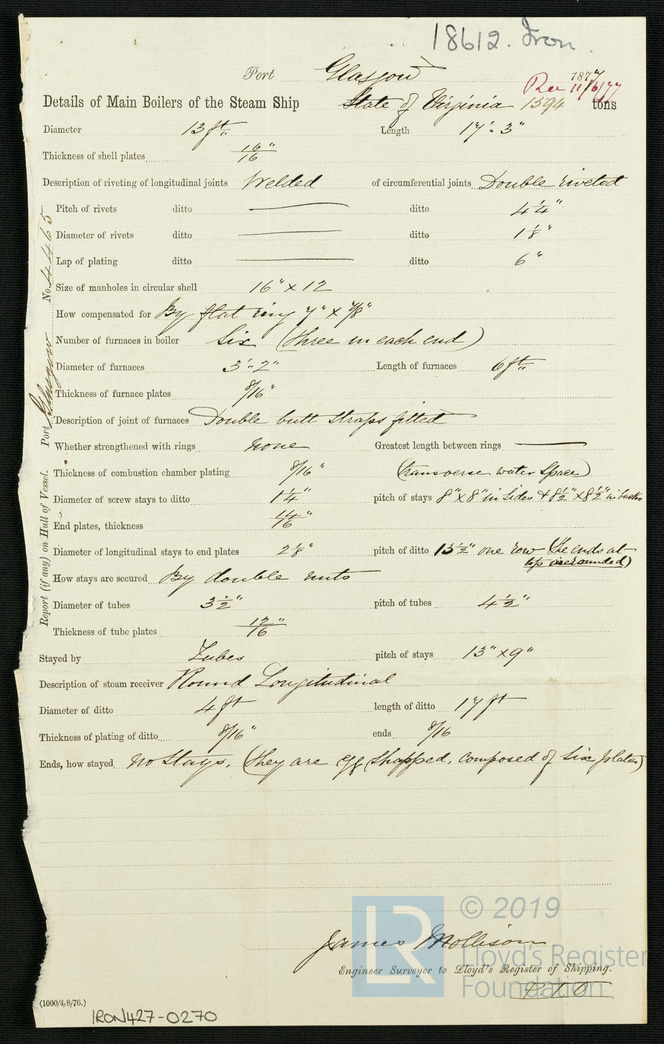 18612. Iron.
Port Glasgow 1877
Rec 11/6/77
Details of Main Boilers of the Steam Ship State of Virginia 1594 tons
Diameter 13 ft. Length 17' 3"
Thickness of shell plates 16/16"
Description of riveting of longitudinal joints Welded of circumferential joints Double riveted
Pitch of rivets ditto — ditto 4 1/4"
Diameter of rivets ditto — ditto 1 1/8"
Lap of plating ditto — ditto 6"
Size of manholes in circular shell 16" x 12
How compensated for By flat ring 7" x 7/8"
Number of furnaces in boiler Six (three in each end)
Diameter of furnaces 3'- 2" Length of furnaces 6 ft.
Thickness of furnace plates 8/16"
Description of joint of furnaces Double butt straps fitted
Whether strengthened with rings none Greatest length between rings —
Thickness of combustion chamber plating 8/16" (transverse water space)
Diameter of screw stays to ditto 1 1/4" pitch of stays 8" x 8" in sides & 8 1/2" x 8 1/2" in backs
End plates, thickness 14/16"
Diameter of longitudinal stays to end plates 2 1/8" pitch of ditto 15 1/2" one row (the ends at
top are rounded)
How stays are secured By double nuts
Diameter of tubes 3 1/2" pitch of tubes 4 1/2"
Thickness of tube plates 12/16"
Stayed by Tubes pitch of stays 13" x 9"
Description of steam receiver Round Longitudinal
Diameter of ditto 4 ft length of ditto 17 ft
Thickness of plating of ditto 8/16" ends 8/16
Ends, how stayed no stays. (they are egg shapped, composed of six plates)
James Mollison
Engineer Surveyor to Lloyd's Register of Shipping.
P.T.O
(1000/4/8/76.)
IRON427-0270
Report (if any) on Hull of Vessel. Port Glasgow No. 4465
© 2019
LR
Lloyd's Register
Foundation